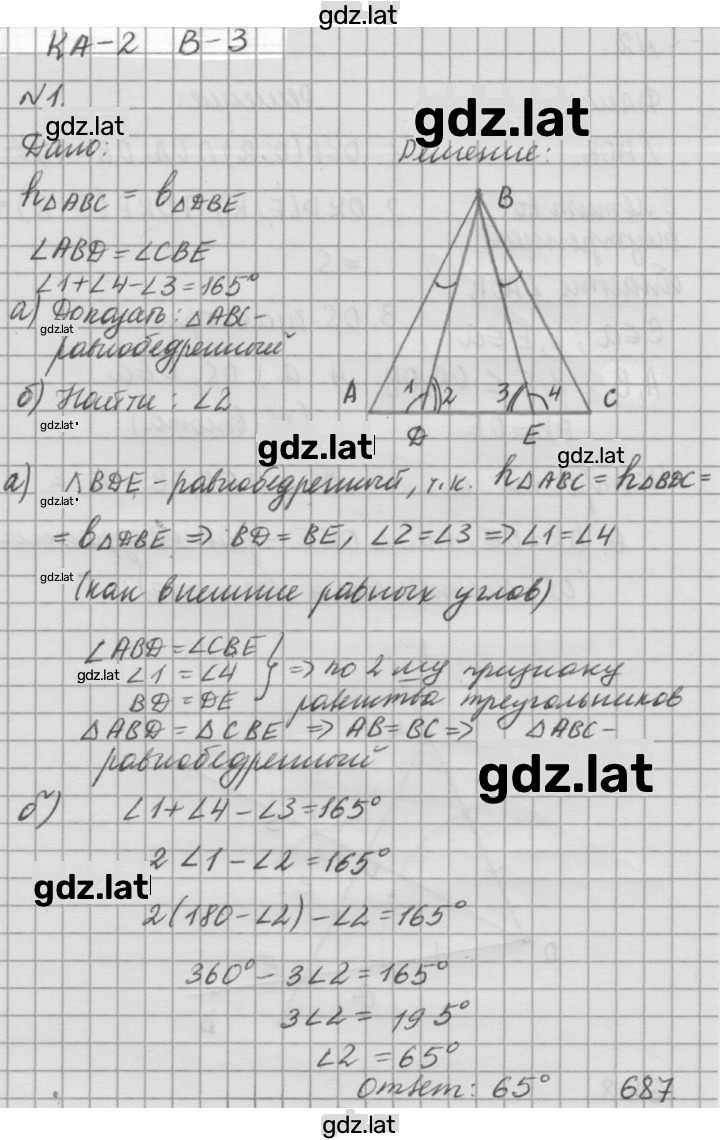 gdz.lat
КА-2 В-3
№1.
gdz.lat
gdz.lat
Дано:
Решение:
h△ABC = b△DBE
∠ABD = ∠CBE
∠1+∠4-∠3=165°
а) Доказать: △ABC-
gdz.lat
равнобедренный
б) Найти: ∠2
gdz.lat
B
A 1 2 3 4 C
D E
gdz.lat
gdz.lat
а) △BDE - равнобедренный, т.к. h△ABC = h△BDC =
gdz.lat
= b△DBE => BD = BE, ∠2=∠3 => ∠1=∠4
gdz.lat
(как внешние равных углов)
∠ABD = ∠CBE
gdz.lat
∠1 = ∠4 } => по 2 му признаку
BD = DE равенства треугольников
△ABD = △CBE => AB = BC => △ABC -
равнобедренный
gdz.lat
б) ∠1+∠4-∠3=165°
2∠1-∠2=165°
gdz.lat
2(180-∠2)-∠2=165°
360°-3∠2=165°
3∠2= 195°
∠2 =65°
Ответ: 65° 687
gdz.lat